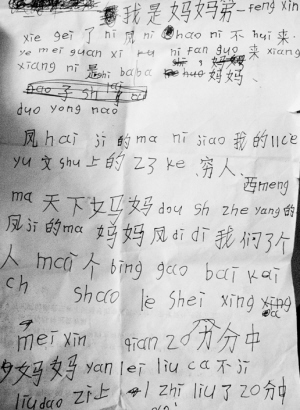 我是妈妈弟一feng xin
xie gei了ni 风ni hao ni 不hui来.
ye mei guan xi ku ni fan guo 来 xiang
xiang ni 是 baba 妈妈.
duo yong nao
风hai ji 的ma ni jiao 我的
yu 文shu上的23ke 穷人.
西meng
ma 天下女马妈dou sh zhe yang的
风ji的ma 妈妈风di di 我们了个
人 mai个bing gao bai kai
ch shao le shei xing
mei xin qian 20分分中
妈妈yan lei liu ca不ji
liu dao zi上 zhi liu了20分中